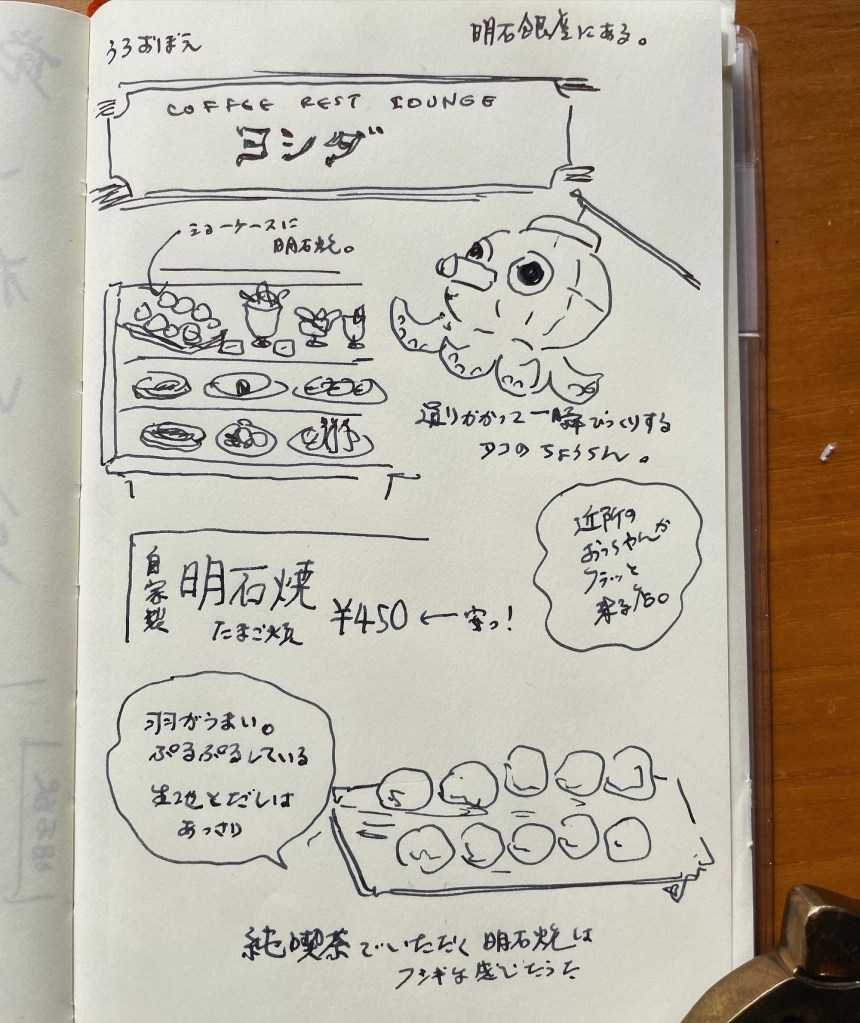 うろおぼえ
明石銀座にある。
COFFEE REST LOUNGE
ヨシダ
ショーケースに
明石焼。
通りかかって一瞬びっくりする
タコのちょうちん。
近所の
おっちゃんが
フラッと
来る
自家製
明石焼
たまご焼
¥450 ← 安っ!
羽がうまい。
ぷるぷるしている
生地とだしは
あっさり
純喫茶でいただく明石焼は
フシギな感じだった